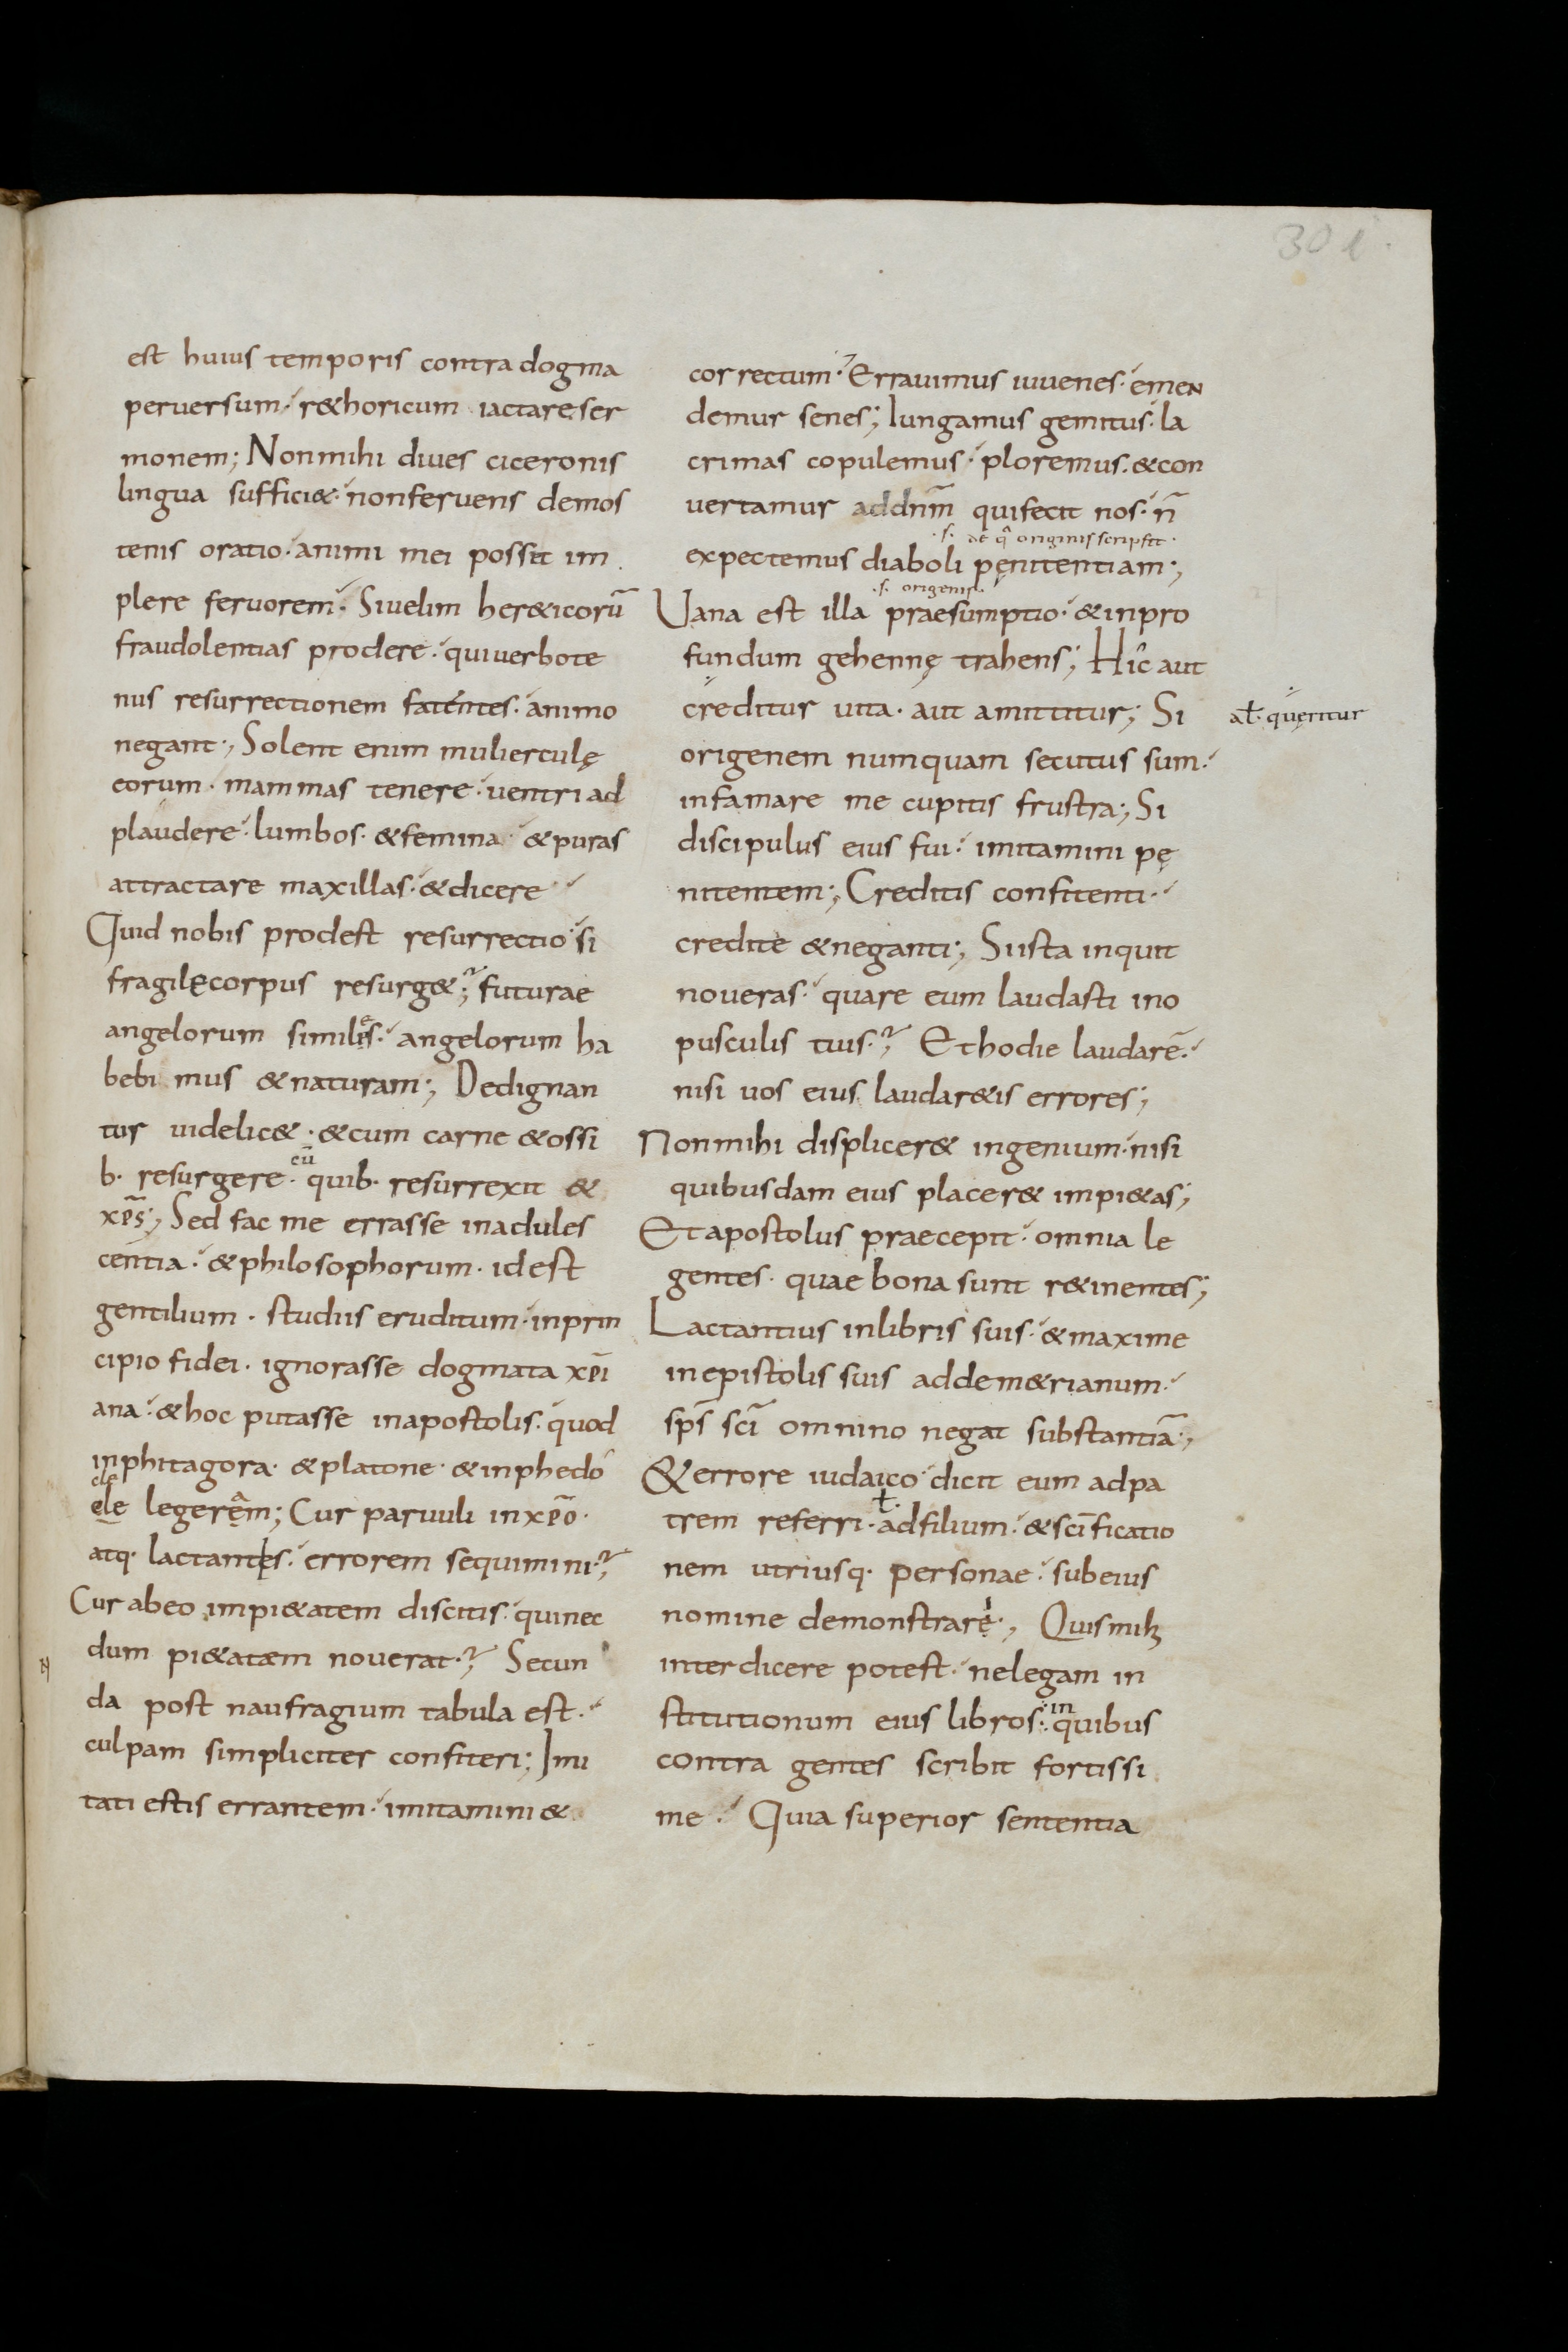 301.
est huius temporis contra dogma
peruersum· r&horicum iactare ser
monem; Non mihi diues ciceronis
lingua suffici&· non feruens demos
tenis oratio· animi mei possit im
plere feruorem· Si uelim her&icorū
fraudolentias prodere· qui uerbote
nus resurrectionem fatentes· animo
negant; Solent enim muliercule̜
eorum· mammas tenere· uentri ad
plaudere· lumbos· & femina· & puras
attractare maxillas· & dicere
Quid nobis prodest resurrectio· si
fragile̜ corpus resurg&; futurae
e
angelorum similis· angelorum ha
bebimus & naturam; Dedignan
tur uidelic&· & cum carne & ossi
cū
b· resurgere· quib· resurrexit &
xp̄s; Sed fac me errasse in adules
centia· & philosophorum· id est
gentilium· studiis eruditum· in prin
cipio fidei· ignorasse dogmata xp̄i
ana· & hoc putasse in apostolis· quod
in phitagora· & platone· & in phedo
cle
ele legere̜m; Cur paruuli in xp̄o·
atq· lactantes· errorem sequimini·
Cur ab eo impi&atem discitis· qui nec
dum pi&atem nouerat· Secun
da post naufragium tabula est·
culpam simpliciter confiteri; Imi
tati estis errantem· imitamini &
correctum· Errauimus iuuenes· emen
demur senes; Iungamus gemitus· la
crimas copulemus· ploremus· & con
uertamur ad dn̄m qui fecit nos· n̄
·s· de q̂ originis scripsit·
expectemus diaboli pe̜nitentiam;
·s· origenis·
Vana est illa praesumptio· & in pro
fundum gehenne̜ trahens; Hîc aut
creditur uita· aut amittitur; Si
aƚ· que̜ritur
origenem numquam secutus sum·
infamare me cupitis frustra; Si
discipulus eius fui· imitamini pe̜
nitentem; Creditis confitenti·
credite & neganti; Si ista inquit
noueras· quare eum laudasti in o
pusculis tuis· Et hodie laudarē·
nisi uos eius laudar&is errores;
Non mihi displicer& ingenium· nisi
quibusdam eius placer& impi&as;
Et apostolus praecepit· omnia le
gentes· quae bona sunt r&inentes;
Lactantius in libris suis· & maxime
in epistolis suis ad dem&rianum·
sp̄s sc̄i omnino negat substantiā;
& errore iudaico· dicit eum ad pa
ƚ·
trem referri· ad filium· & sc̄ificatio
nem utriusq· personae· sub eius
nomine demonstrare̜· Quis mihi
interdicere potest· ne legam in
in
stitutionum eius libros· quibus
contra gentes scribit fortissi
me· Quia superior sententia